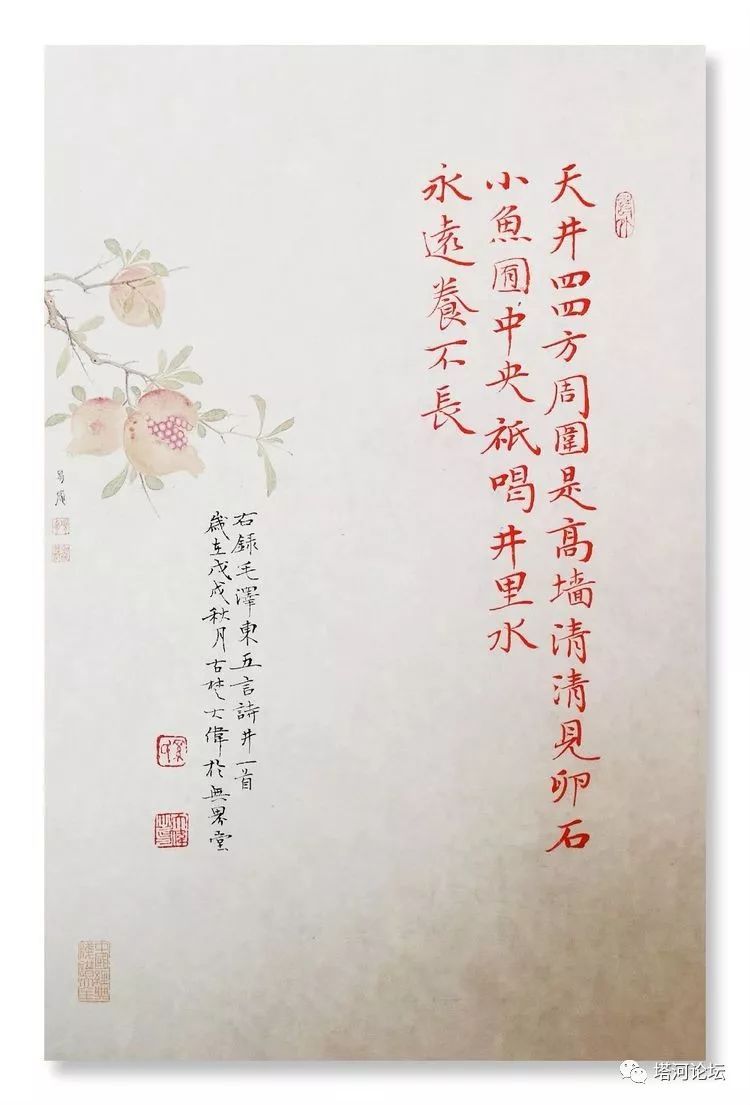 天井四四方周圍是高墙清清見卵石
小魚囿中央祇喝井里水
永遠養不長
右録毛澤東五言詩井一首
歲在戊戌秋月古楚大偉於無界堂
塔河论坛